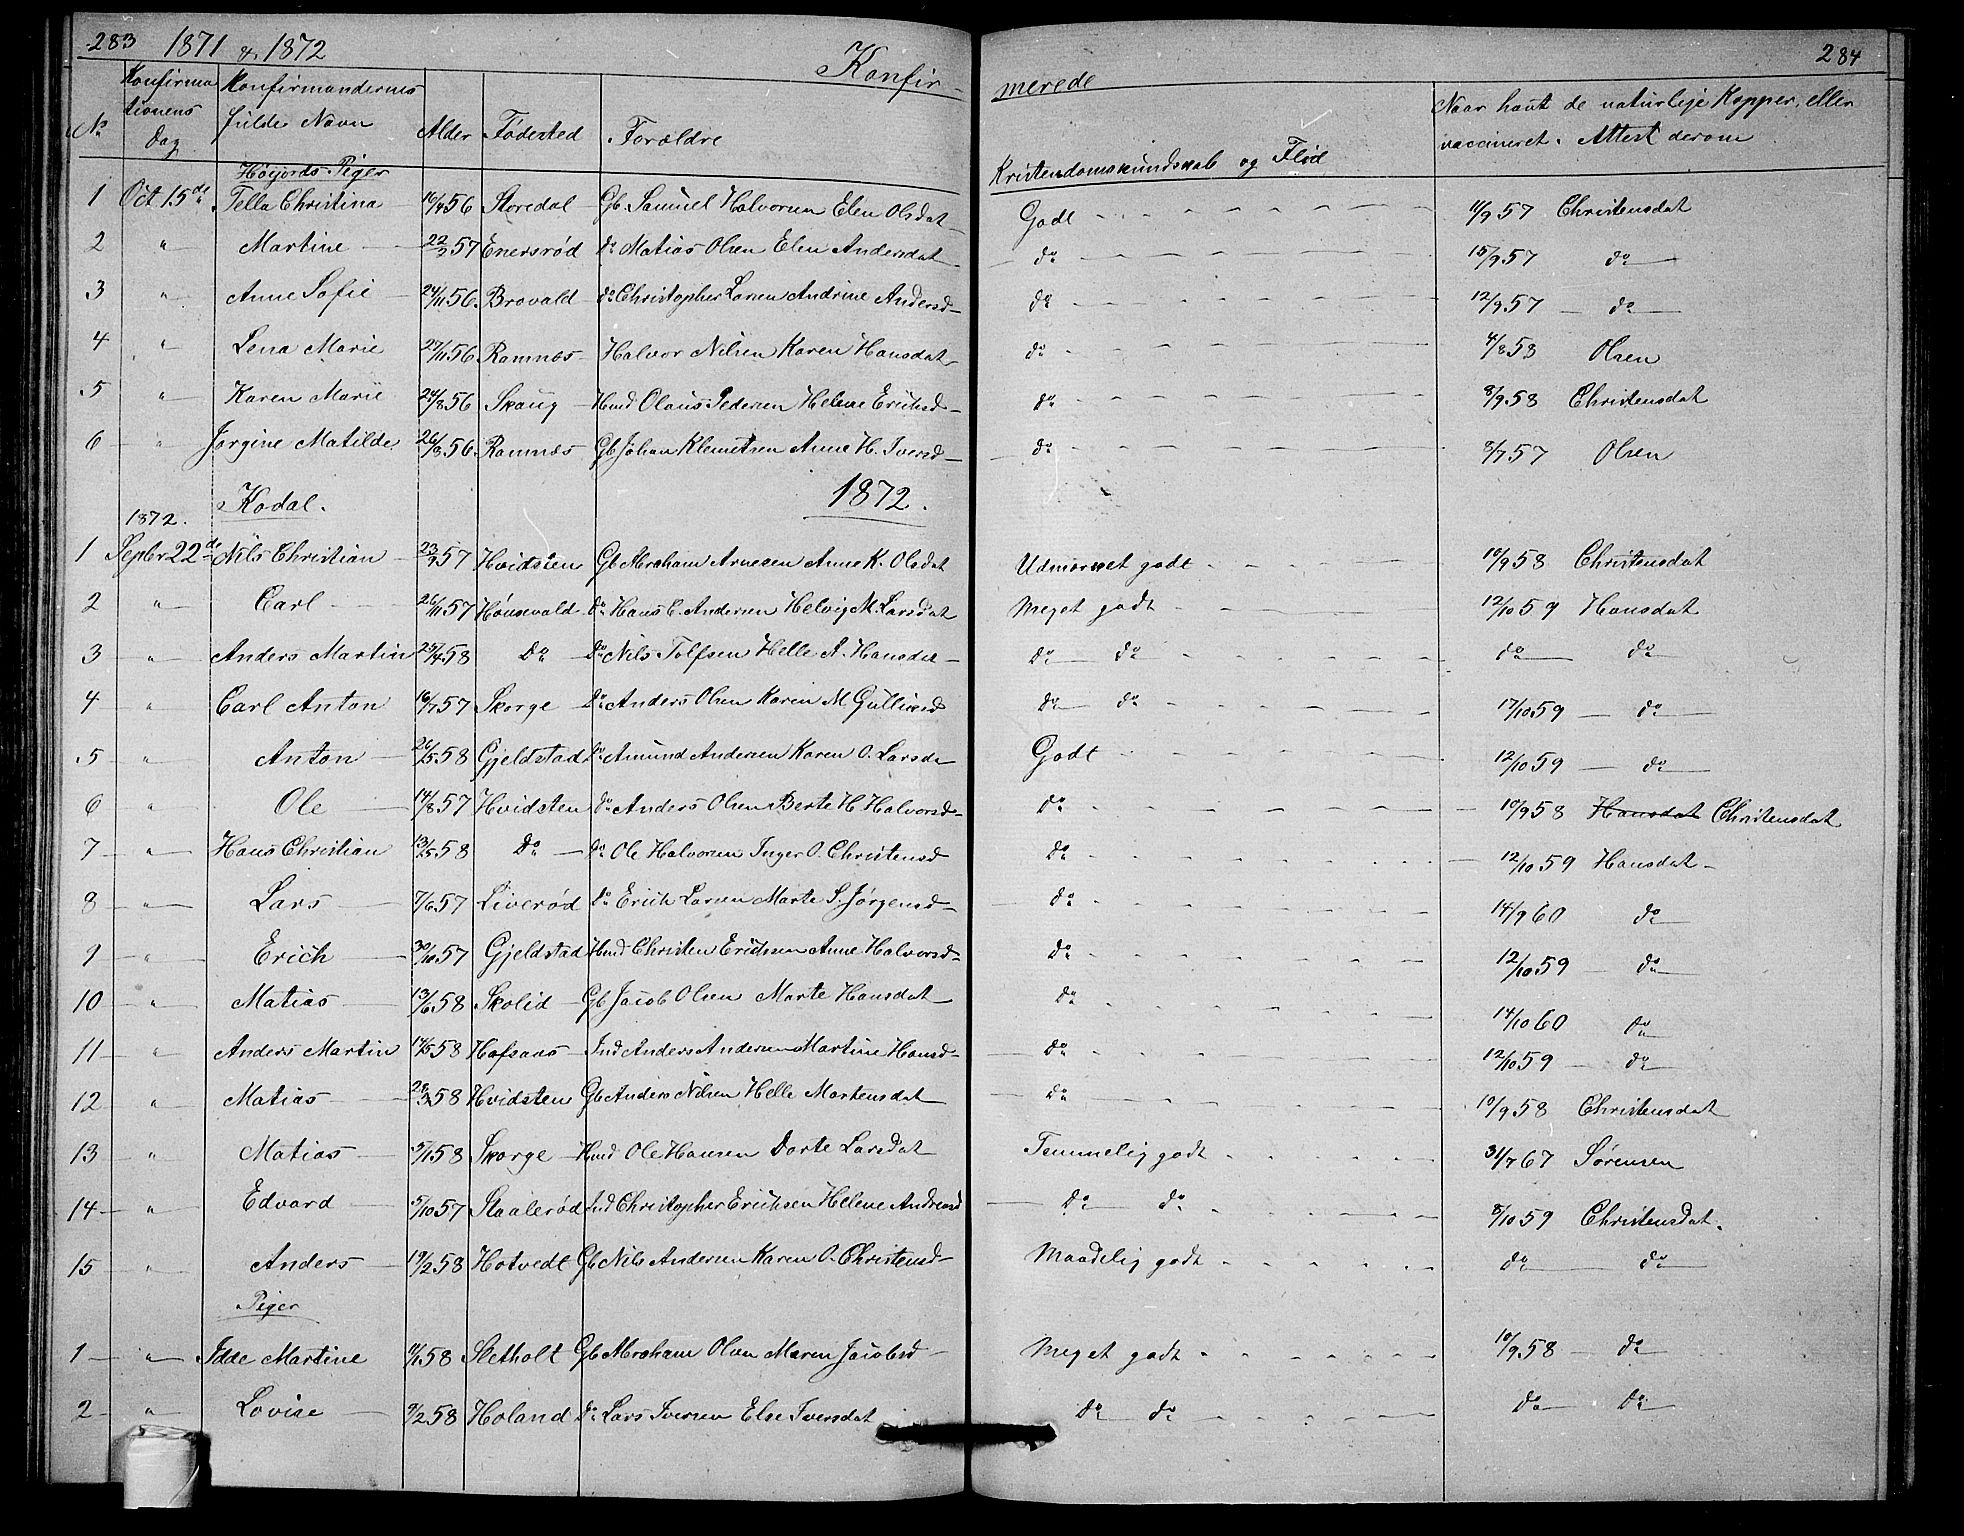 283 1871 & 1872 Konfir- merede 284
No Konfirmationens Dag Konfirmandernes fulde Navn Alder Fødested Forældre Kristendomskundskab og Flid Naar havt de naturlige Kopper, eller vaccineret. Attest derom
Høijords Piger
1 Oct 15de Tella Christina 56 Storedal Gb. Samuel Halvorsen Elen Olsdat Godt 11/9 57 Christensdat
2 " Martine 22/2 57 Enersrød do Matias Olsen Elen Andersdat do 15/9 57 do
3 " Anne Sofie 24/11 56 Brovald do Christopher Larsen Andrine Andersd do 12/9 57 do
4 " Lena Marie 27/11 56 Ramnæs Halvor Nilsen Karen Hansdat do 4/8 58 Olsen
5 " Karen Marie 24/8 56 Skaug Hmd Olaus Pedersen Helene Erichsd do 8/9 58 Christensdat
6 " Jørgine Matilde 26/8 56 Ramnæs Gb Johan Klemetsen Anne H. Iversd do 8/7 57 Olsen
Kodal. 1872.
1872.
1 Sepbr 22de Nils Christian 57 Hvidsten Gb Abraham Arnesen Anne K. Olsdat Udmærket godt 10/9 58 Christensdat
2 " Carl 26/11 57 Hønsvald do Hans C. Andersen Helvig M. Larsdat Meget godt 12/10 59 Hansdat
3 " Anders Martin 25/4 58 Do Do Nils Tolfsen Helle A. Hansdat Do do do do
4 " Carl Anton 16/7 57 Skorge Do Anders Olsen Karen M Gulliksd Do do 17/10 59 do
5 " Anton 26/5 58 Gjeldstad Do Amund Andersen Karen O. Larsda Godt 12/10 59 do
6 " Ole 14/8 57 Hvidsten do Anders Olsen Berte H. Halvorsd Do 10/9 58 Hansdat Christensdat
7 " Hans Christian 13/5 58 Do Do Ole Halvorsen Inger O. Christensd Do 12/10 59 Hansdat
8 " Lars 7/6 57 Liverød Do Erich Larsen Marte S. Jørgensd Do 14/9 60 do
9 " Erich 30/10 57 Gjeldstad Hmd Christen Erichsen Anne Halvorsd Do 12/10 59 do
10 " Matias 13/6 58 Skolid Gb Jacob Olsen Marte Hansdat Do 14/10 60 do
11 " Anders Martin 17/5 58 Hafsaas Ind Anders Andersen Martine Hansd Do 12/10 59 do
12 " Matias 58 Hvidsten Gb Anders Nilsen Helle Martensdat Do 10/9 58 Christensdat
13 " Matias 58 Skorge Hmd Ole Hansen Dorte Larsdat Temmelig godt 31/7 67 Sørensen
14 " Edvard 5/10 57 Staalerød Ind Christopher Erichsen Helene Andersd Do do 8/10 59 Christensdat.
15 " Anders 19/2 58 Hotvedt Gb Nils Andersen Karen O. Christensd Maadelig godt do do
Piger
1 " Idde Martine 58 Sletholt Gb Abraham Olsen Maren Jacobsd Meget godt 10/9 58 do
2 " Lovise 9/2 58 Holand do Lars Iversen Else Iversdat Do do do do